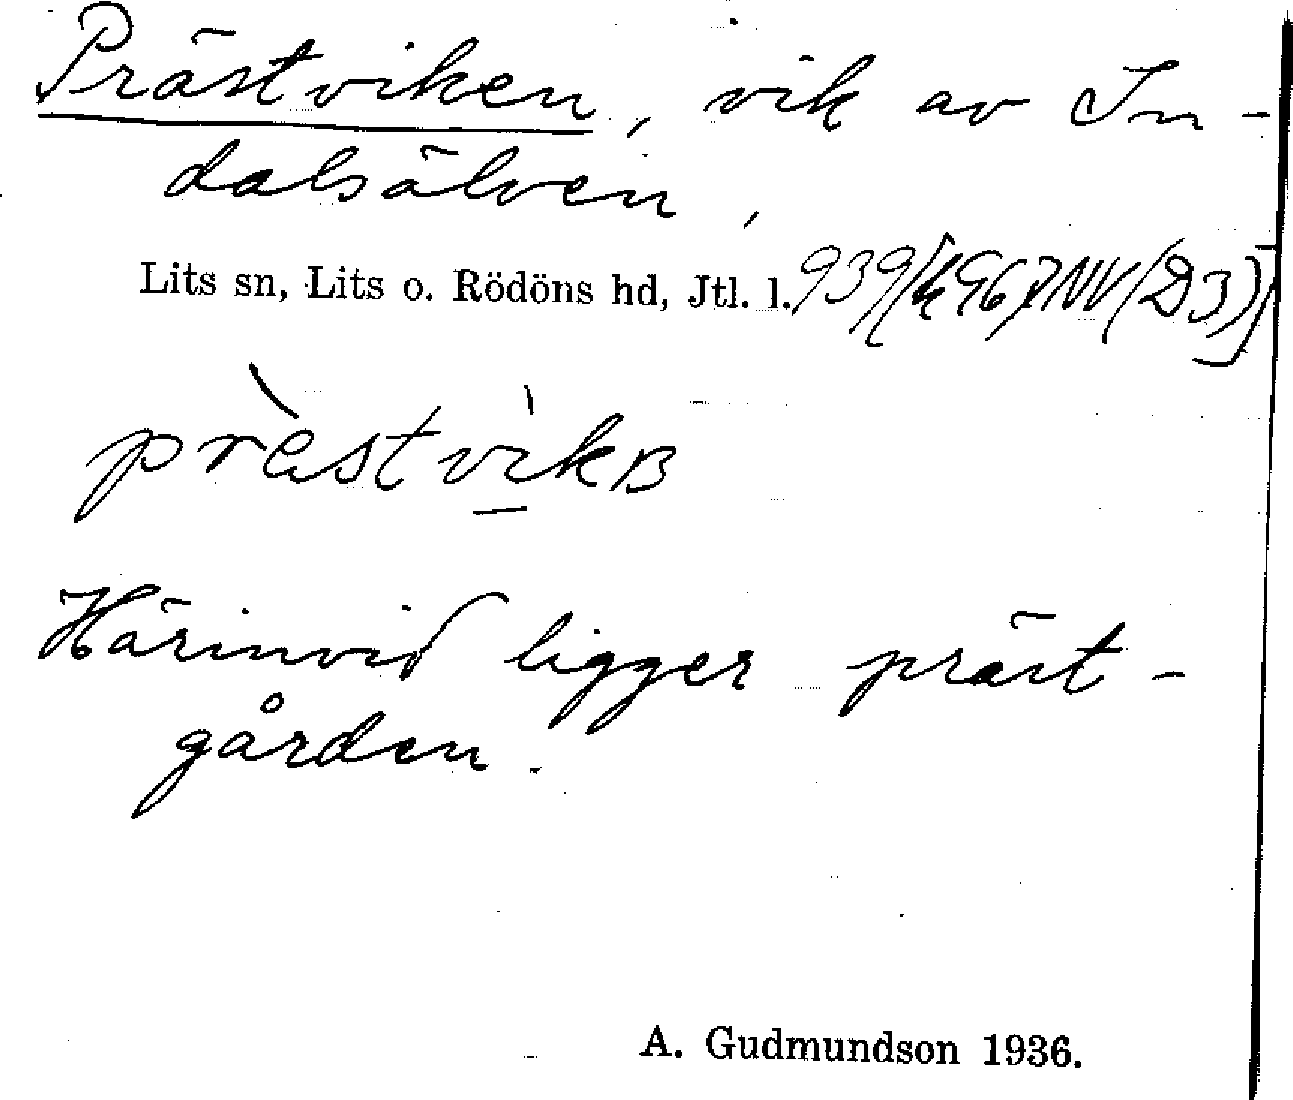 Prästviken, vik av In-
dalsälven,
Lits sn, Lits o. Rödöns hd, Jtl. l.
Härinvid ligger präst-
gården.
A. Gudmundson 1936.